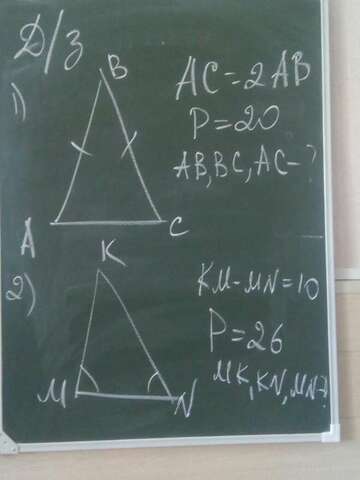 Д/З
1)
B
A
C
AC=2AB
P=20
AB,BC,AC-?
2)
K
M
N
KM-MN=10
P=26
MK,KN,MN-?